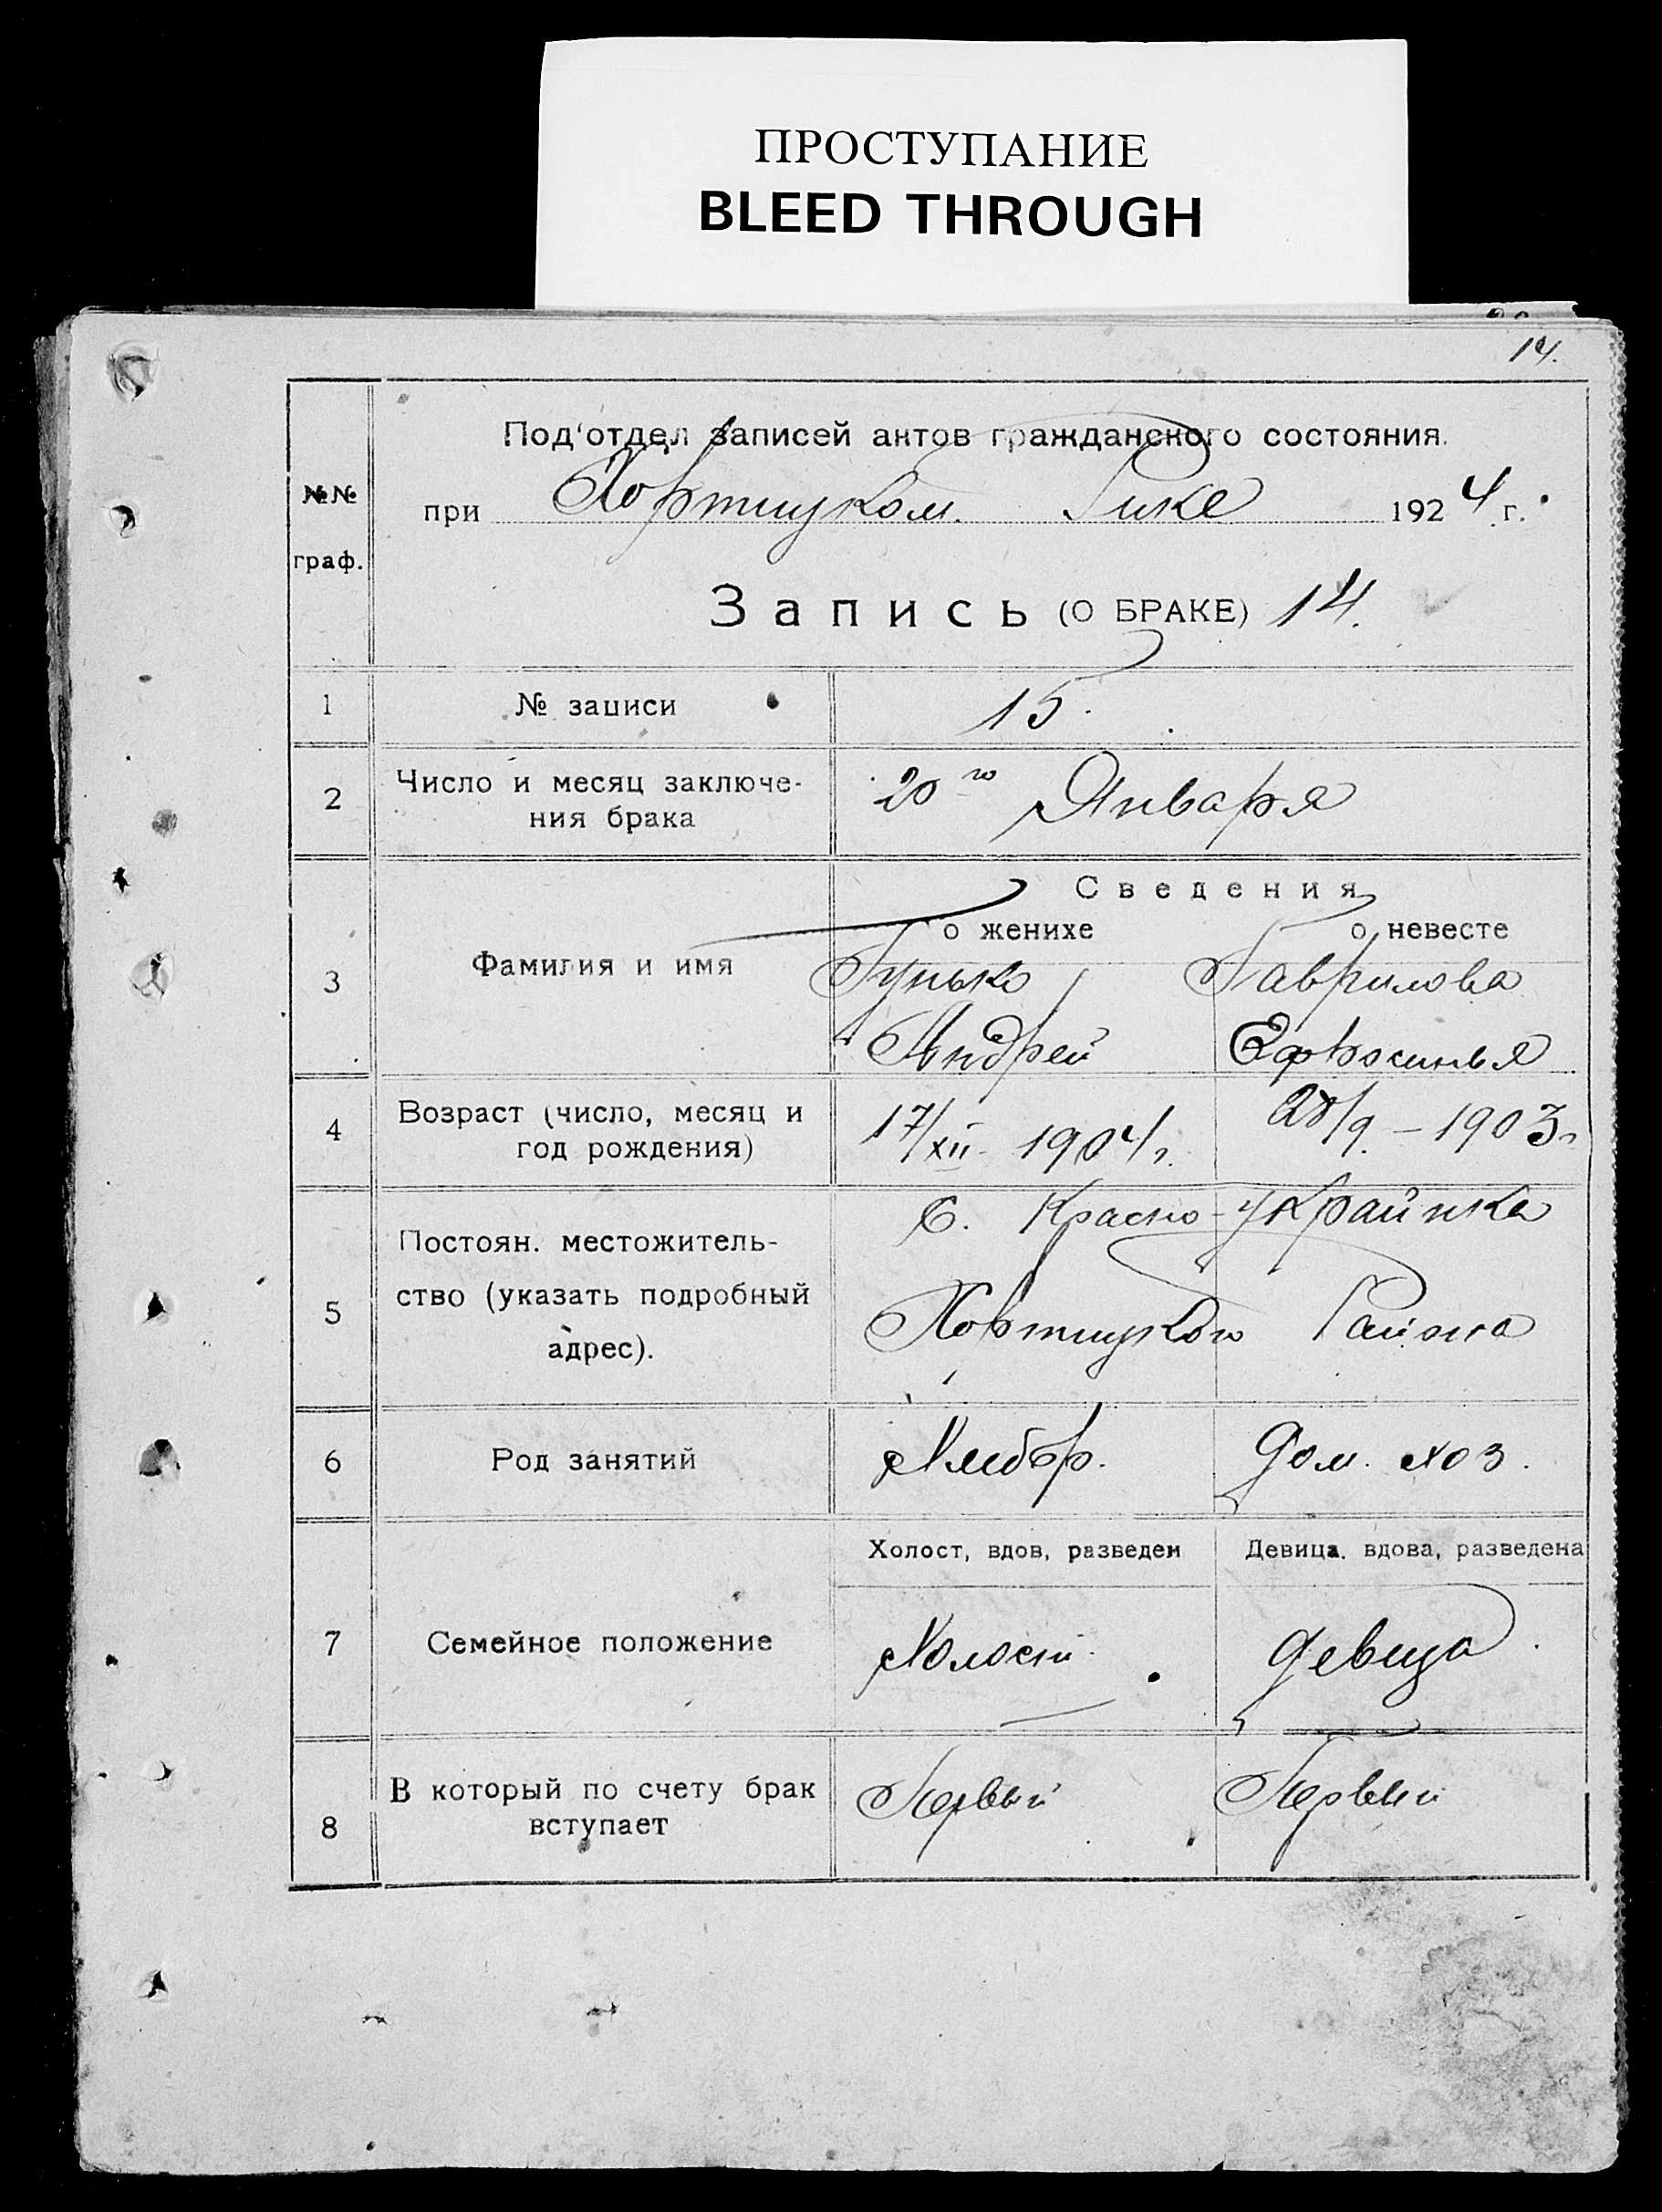 ПРОСТУПАНИЕ
BLEED THROUGH
14.
№№
граф.
Под'отдел записей актов гражданского состояния.
при Хортицком Рике 1924 г.
Запись (О БРАКЕ) 14.
1 № записи 15.
2 Число и месяц заключе-
ния брака
20го Января
3 Фамилия и имя
Сведения
о женихе о невесте
Гунько Гаврилова
Андрей Ефросинья
4 Возраст (число, месяц и
год рождения)
17/XII - 1904 г. 28/9. - 1903 г.
5 Постоян. местожитель-
ство (указать подробный
адрес).
С. Красно-Украинка
Хортицкого Района
6 Род занятий
Хлебор. Дом. хоз.
7 Семейное положение
Холост, вдов, разведен Девица, вдова, разведена
Холост. девица
8 В который по счету брак
вступает
Первый Первый